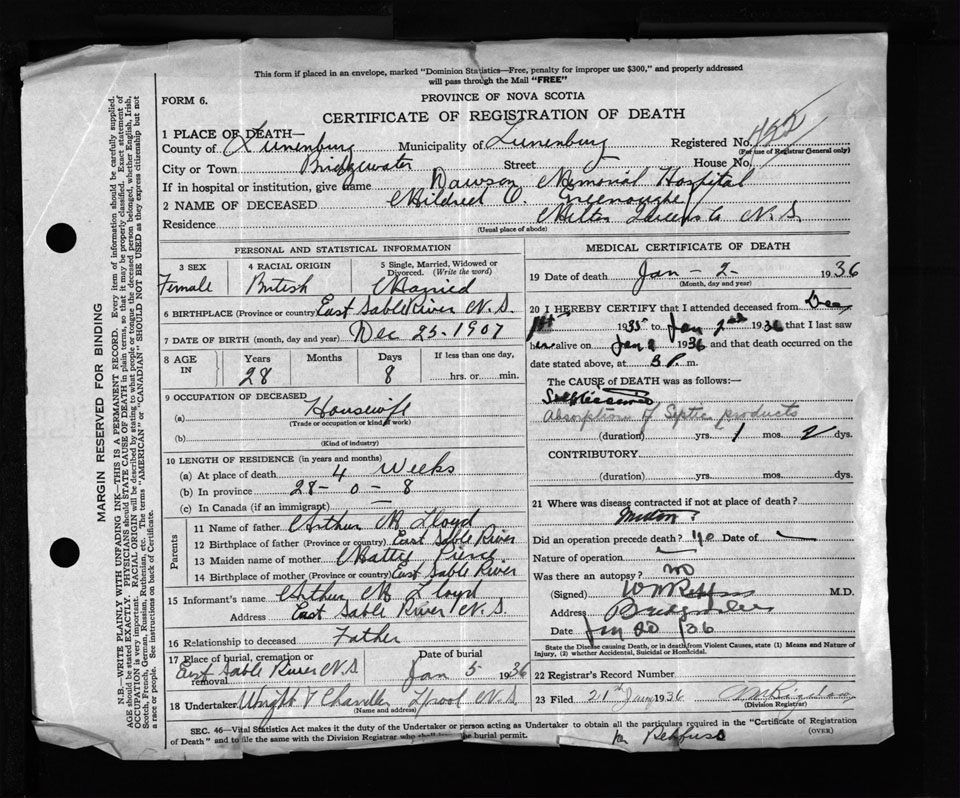 This form if placed in an envelope, marked "Dominion Statistics—Free, penalty for improper use $300," and properly addressed
will pass through the Mail "FREE"
FORM 6.
PROVINCE OF NOVA SCOTIA
CERTIFICATE OF REGISTRATION OF DEATH
1 PLACE OF DEATH—
County of Lunenburg Municipality of Lunenburg Registered No.
(For use of Registrar General only)
City or Town Bridgewater Street House No.
If in hospital or institution, give name Dawson Memorial Hospital
2 NAME OF DECEASED Mildred O. Greenough
Residence Milton Queens Co N.S.
(Usual place of abode)
PERSONAL AND STATISTICAL INFORMATION
3 SEX Female
4 RACIAL ORIGIN British
5 Single, Married, Widowed or
Divorced. (Write the word)
Married
6 BIRTHPLACE (Province or country) East Sable River N.S.
7 DATE OF BIRTH (month, day and year) Dec 25-1907
8 AGE IN Years 28 Months Days 8 If less than one day,
hrs. or min.
9 OCCUPATION OF DECEASED
(a) Housewife
(Trade or occupation or kind of work)
(b)
(Kind of industry)
10 LENGTH OF RESIDENCE (in years and months)
(a) At place of death 4 Weeks
(b) In province 28-0-8
(c) In Canada (if an immigrant) —
Parents
11 Name of father Arthur M Lloyd
12 Birthplace of father (Province or country) East Sable River
13 Maiden name of mother Matty Pierce
14 Birthplace of mother (Province or country) East Sable River
15 Informant's name Arthur M Lloyd
Address East Sable River N.S.
16 Relationship to deceased Father
17 Place of burial, cremation or
removal East Sable River N.S.
Date of burial
Jan 5 1936
18 Undertaker Wright & Chandler Lpool N.S.
(Name and address)
MEDICAL CERTIFICATE OF DEATH
19 Date of death Jan - 2 - 1936
(Month, day and year)
20 I HEREBY CERTIFY that I attended deceased from Dec
1935 to Jan 2nd 1936 that I last saw
her alive on Jan 2 1936 and that death occurred on the
date stated above, at 3 P. m.
The CAUSE of DEATH was as follows:—
Absorption of Septic products
(duration) yrs. 1 mos. 2 dys.
CONTRIBUTORY
(duration) yrs. mos. dys.
21 Where was disease contracted if not at place of death?
Milton?
Did an operation precede death? no Date of —
Nature of operation —
Was there an autopsy? no
(Signed) M.D.
Address Bridgewater
Date Jan 20 /36
State the Disease causing Death, or in death from Violent Causes, state (1) Means and Nature of
Injury, (2) whether Accidental, Suicidal or Homicidal.
22 Registrar's Record Number
23 Filed 21st Jan 1936
(Division Registrar)
SEC. 46—Vital Statistics Act makes it the duty of the Undertaker or person acting as Undertaker to obtain all the particulars required in the "Certificate of Registration
of Death" and to file the same with the Division Registrar who shall issue the burial permit.
(OVER)
Rehfuss
MARGIN RESERVED FOR BINDING
N.B.—WRITE PLAINLY WITH UNFADING INK—THIS IS A PERMANENT RECORD. Every item of information should be carefully supplied.
AGE should be stated EXACTLY. PHYSICIANS should STATE CAUSE OF DEATH in plain terms, so that it may be properly classified. Exact statement of
OCCUPATION is very important. RACIAL ORIGIN will be described by stating to what people or tongue the deceased person belonged, whether English, Irish,
Scotch, French, German, Russian, Ruthenian, etc. The terms "AMERICAN" or "CANADIAN" SHOULD NOT BE USED as they express citizenship but not
a race or people. See instructions on back of Certificate.